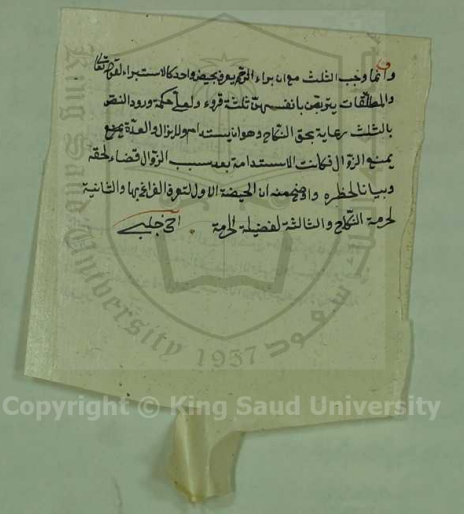 وانما وجب الثلث مع ان براءة الرحم يعرف بحيض واحد كالاستبراء لقوله تعالى
والمطلقات يتربصن بانفسهن ثلثة قروء ولعل حكمة ورود النص
بالثلث رعاية بحق النكاح وهو ان يستدام ولا يزال والعدة
يمنع الزوال فكانت الاستدامة بعد سبب الزوال قضاء لحقه
وبيانا لخطره ان الحيضة الاولى لتعرف الفراغ بها والثانية
لحرمة النكاح والثالثة لفضيلة الحرمة اخي جلبي
King Saud University
1957
جامعة الملك سعود
Copyright © King Saud University